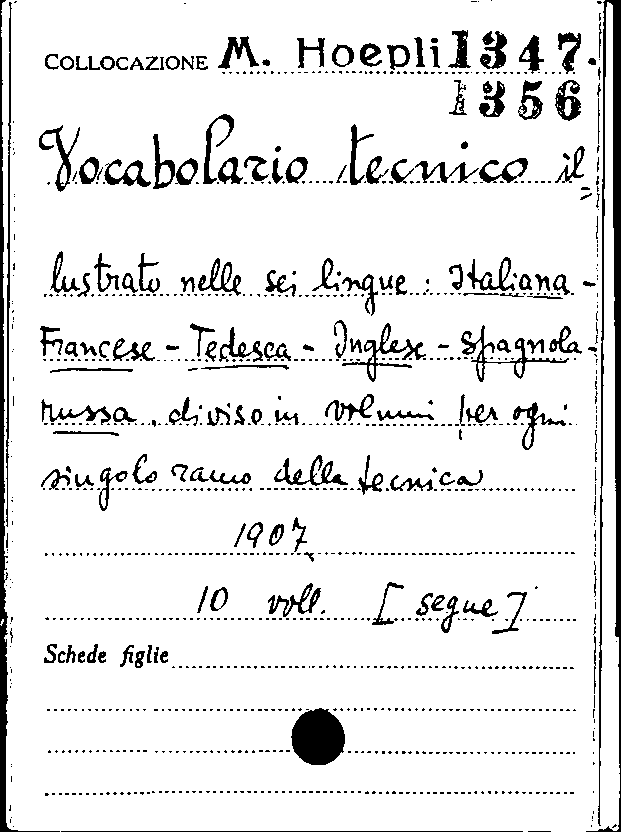 COLLOCAZIONE M. Hoepli 1347.
1356
Vocabolario tecnico il=
lustrato nelle sei lingue : Italiana -
Francese - Tedesca - Inglese - Spagnola -
russa , diviso in volumi per ogni
singolo ramo della tecnica
1907
10 voll. [ segue ]
Schede figlie